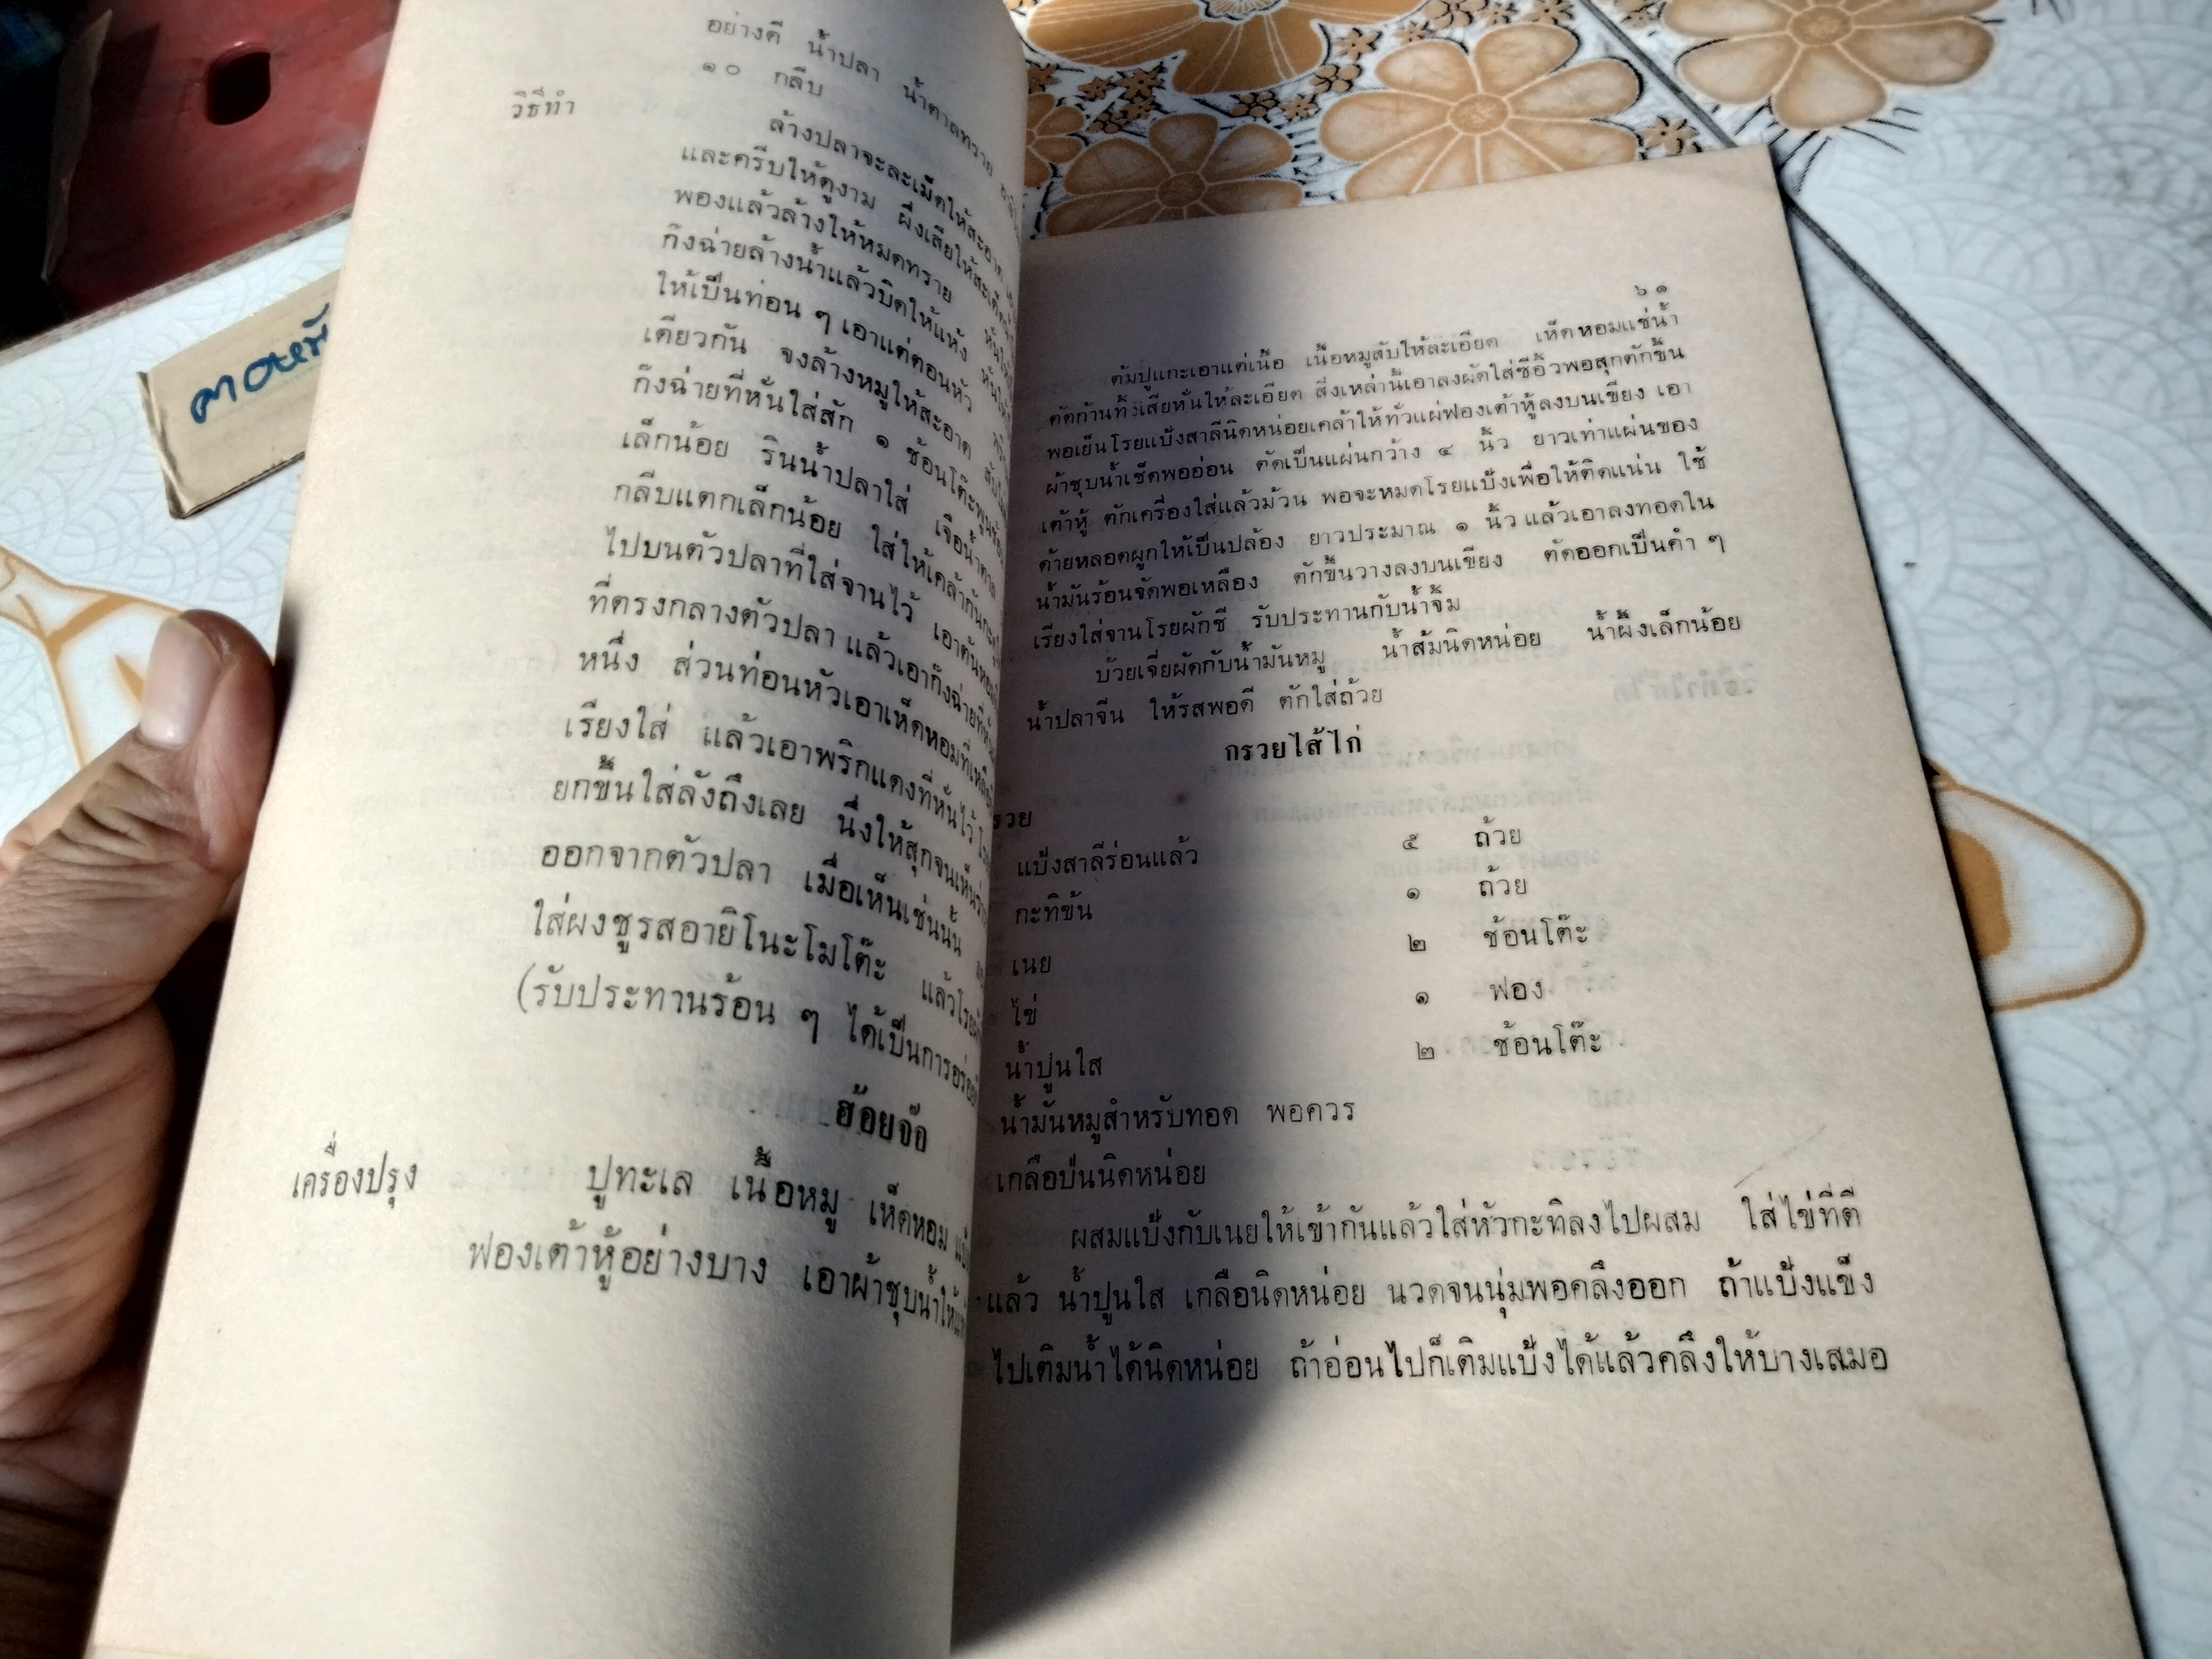 อย่างดี น้ำปลา น้ำตาลทราย
๑๐ กลีบ
วิธีทำ
ล้างปลาจะละเม็ดให้สะอาด
และครีบให้ดูงาม ผึ่งเสียให้สะเด็ดน้ำ
พองแล้วล้างให้หมดทราย
กังฉ่ายล้างน้ำแล้วบิดให้แห้ง
ให้เป็นท่อน ๆ เอาแต่ตอนหัว
เดียวกัน จงล้างหมูให้สะอาด
กังฉ่ายที่หั่นใส่สัก ๑ ช้อนโต๊ะพูน
เล็กน้อย รินน้ำปลาใส่ เจือน้ำตาล
กลีบแตกเล็กน้อย ใส่ให้เคล้ากัน
ไปบนตัวปลาที่ใส่จานไว้ เอาต้นหอม
ที่ตรงกลางตัวปลา แล้วเอากังฉ่ายที่หั่น
หนึ่ง ส่วนท่อนหัวเอาเห็ดหอมที่เหลือ
เรียงใส่ แล้วเอาพริกแดงที่หั่นไว้
ยกขึ้นใส่ลังถึงเลย นึ่งให้สุกจนเห็นว่า
ออกจากตัวปลา เมื่อเห็นเช่นนั้น
ใส่ผงชูรสอายิโนะโมโต๊ะ แล้วโรย
(รับประทานร้อน ๆ ได้เป็นการอร่อย
ฮ้อยจ๊อ
เครื่องปรุง
ปูทะเล เนื้อหมู เห็ดหอม
ฟองเต้าหู้อย่างบาง เอาผ้าชุบน้ำให้
๖๑
ต้มปูแกะเอาแต่เนื้อ เนื้อหมูสับให้ละเอียด เห็ดหอมแช่น้ำ
ตัดก้านทิ้งเสียหั่นให้ละเอียด สิ่งเหล่านี้เอาลงผัดใส่ซีอิ๊วพอสุกตักขึ้น
พอเย็นโรยแป้งสาลีนิดหน่อยเคล้าให้ทั่วแผ่ฟองเต้าหู้ลงบนเขียง เอา
ผ้าชุบน้ำเช็ดพออ่อน ตัดเป็นแผ่นกว้าง ๔ นิ้ว ยาวเท่าแผ่นของ
เต้าหู้ ตักเครื่องใส่แล้วม้วน พอจะหมดโรยแป้งเพื่อให้ติดแน่น ใช้
ด้ายหลอดผูกให้เป็นปล้อง ยาวประมาณ ๑ นิ้ว แล้วเอาลงทอดใน
น้ำมันร้อนจัดพอเหลือง ตักขึ้นวางลงบนเขียง ตัดออกเป็นคำ ๆ
เรียงใส่จานโรยผักชี รับประทานกับน้ำจิ้ม
บ๊วยเจี่ยผัดกับน้ำมันหมู น้ำส้มนิดหน่อย น้ำผึ้งเล็กน้อย
น้ำปลาจีน ให้รสพอดี ตักใส่ถ้วย
กรวยไส้ไก่
รวย
แป้งสาลีร่อนแล้ว ๕ ถ้วย
กะทิข้น ๑ ถ้วย
เนย ๒ ช้อนโต๊ะ
ไข่ ๑ ฟอง
น้ำปูนใส ๒ ช้อนโต๊ะ
น้ำมันหมูสำหรับทอด พอควร
เกลือป่นนิดหน่อย
ผสมแป้งกับเนยให้เข้ากันแล้วใส่หัวกะทิลงไปผสม ใส่ไข่ที่ตี
แล้ว น้ำปูนใส เกลือนิดหน่อย นวดจนนุ่มพอคลึงออก ถ้าแป้งแข็ง
ไปเติมน้ำได้นิดหน่อย ถ้าอ่อนไปก็เติมแป้งได้แล้วคลึงให้บางเสมอ